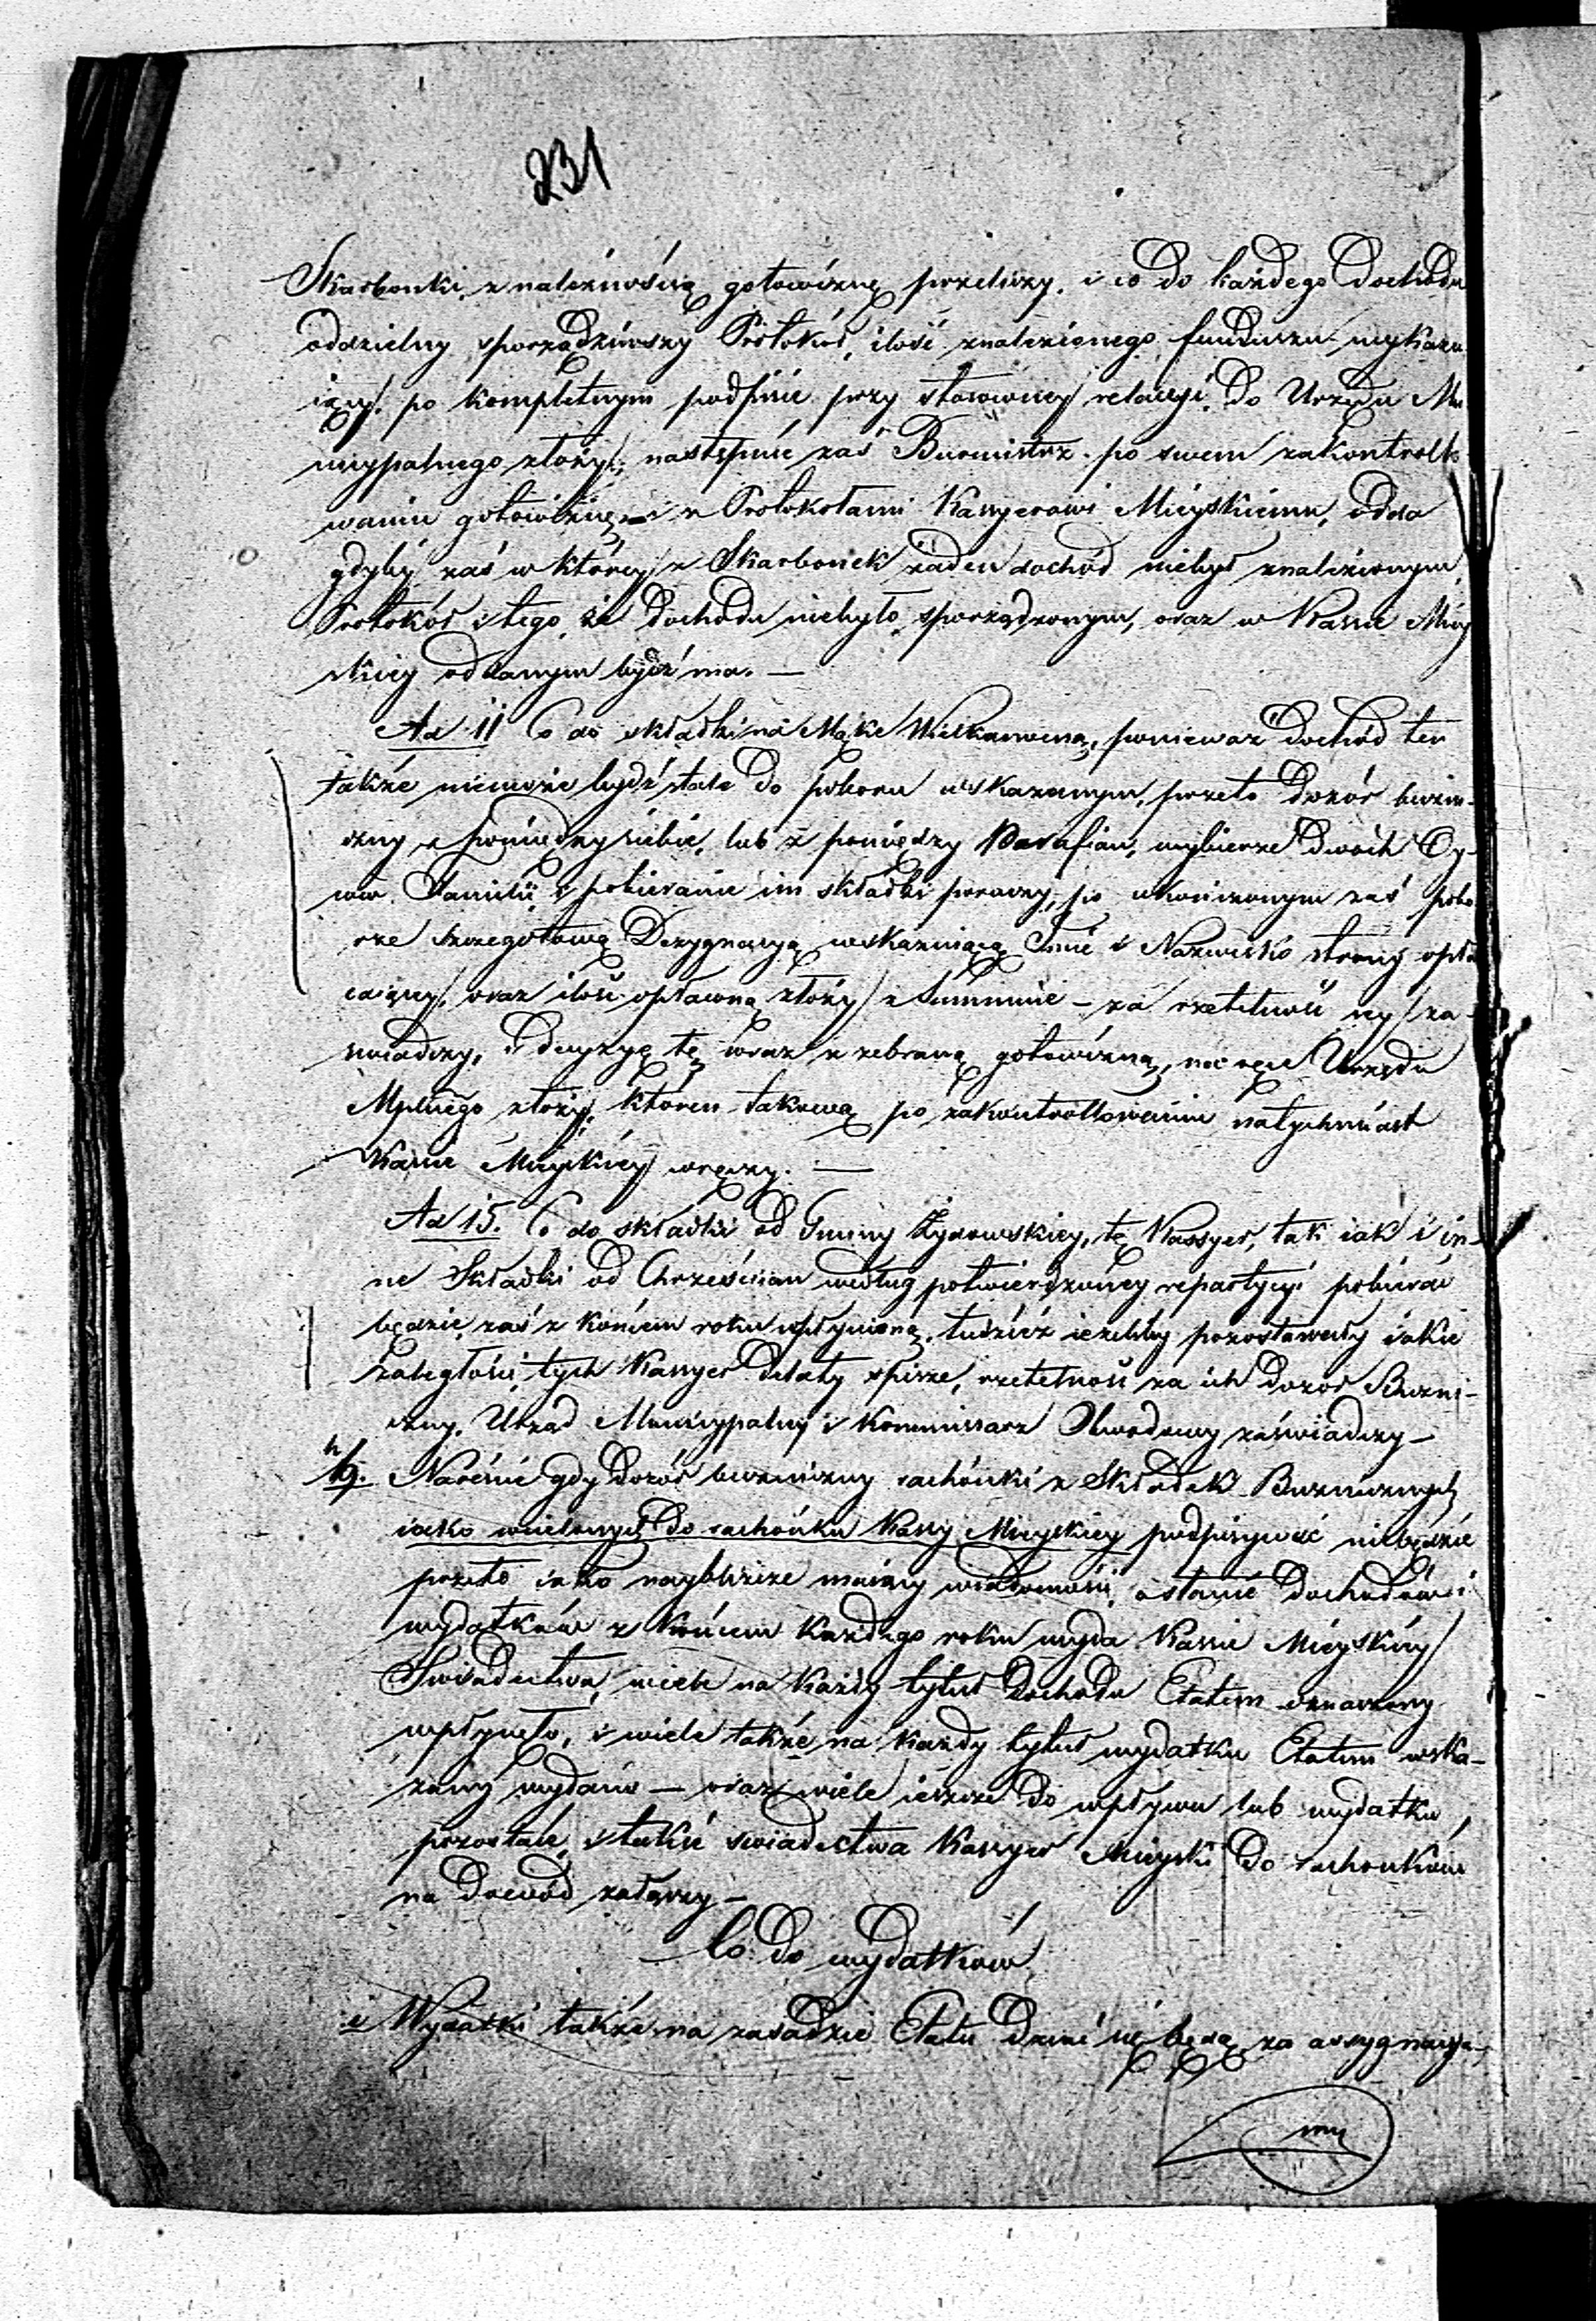 231
Skarbonki, z należnością gotowiznę przeliczy, i co do każdego Dochodu
oddzielny sporządziwszy Protokół, ilość znalezionego funduszu wykazu
iący, po kompletnym podpisie przy stosowney relacyi, do Urzędu Mu
nicypalnego złoży, następnie zaś Burmistrz po swem zakontrollo
waniu gotowiznę i z Protokołami Kassyerowi Mieyskiemu, odda
gdyby zaś w którey z Skarbonek żaden dochód niebył znalezionym,
Protokół i tego, że Dochodu niebyło, sporządzonym, oraz w Kassie Miey
skiey oddanym bydź ma. —
Ad 11 Co do składki na Mąkę Wielkanocną, ponieważ Dochód ten
także niemoże bydź stale do poboru wskazanym, przeto Dozór bużni-
czny z pomiędzy siebie, lub z pomiędzy Parafian, wybierze dwóch Oy-
ców Familii, i pobieranie im składki poruczy, po ukończonym zaś pobo
rze szczegółową Dezygnacyą wskazuiącą Imie i Nazwisko strony opła
caiącey, oraz ilość opłaconą złoży z Summie — za rzetelność iey za-
świadczy, i decyzyę tę wraz z zebraną gotowizną, na ręce Urzędu
Mplnego złoży, któren takową po zakontrollowaniu natychmiast
Kassie Mieyskiey wręczy. —
Ad 15. Co do składki od Gminy Żydowskiey, tę Kassyer, tak iak i in-
ne Składki od Chrześcian według potwierdzoney repartycyi pobierać
będzie, zaś z końcem roku wpłynioną, tudzież ieżeliby pozostawały iakie
zaległości, tych Kassyer Detaxy spisze, rzetelność za ich Dozór Bużni-
czny, Urząd Municypalny i Kommissarz Obwodowy zaświadczy —
h/. Nareście gdy Dozór bużniczny rachunki z Składek Bużnicznych
iako wcielonych do rachunku Kassy Mieyskiey podpisywać niebędzie
przeto iako naybliższe maiący wiadomości, o stanie Dochodów i
wydatków z końcem każdego roku wyda Kassie Mieyskiey
Świadectwa, wiele na każdy tytuł Dochodu Etatem oznaczony
wpłynęło, i wiele także na każdy tytuł wydatku Etatem wska-
zany wydano — oraz wiele ieszcze do wpływu lub wydatku
pozostaie, i takie świadectwa Kassyer Mieyski do rachunków
na Dowód załączy —
Co do wydatków
i Wydatki także na zasadzie Etatu dziać się będą, za assygnacya-
mi